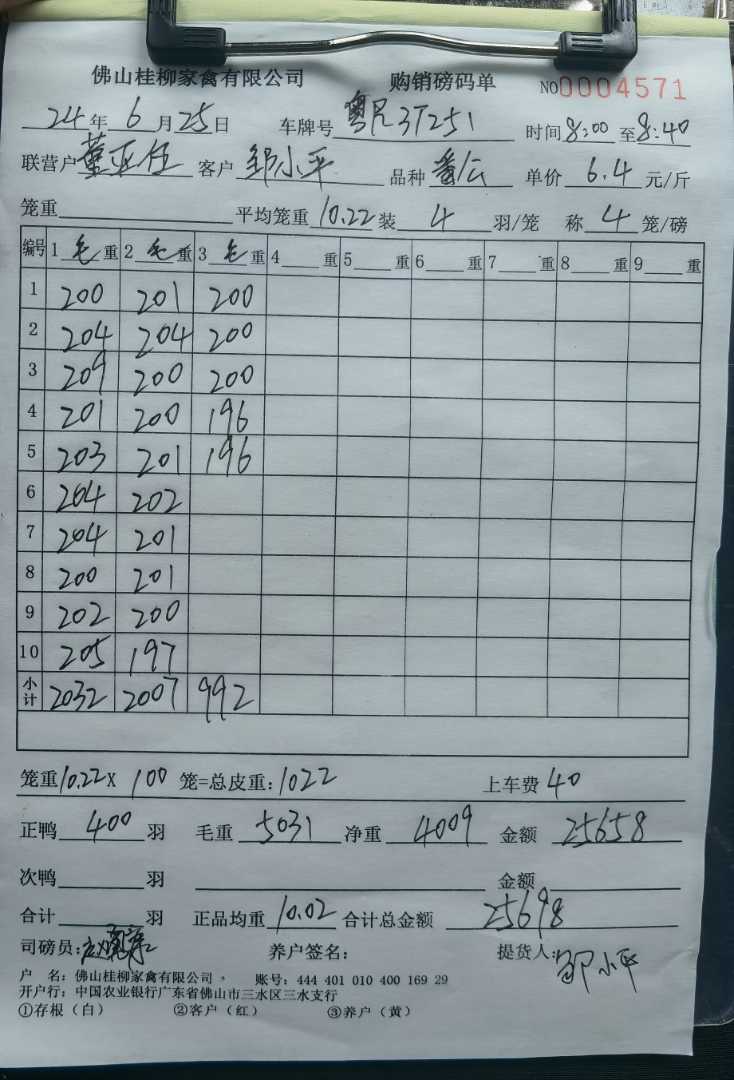 佛山桂柳家禽有限公司 购销磅码单 NO0004571
24年6月25日 车牌号 37251 时间8:00至8:40
联营户 客户 邹小平 品种 番 单价 6.4 元/斤
笼重 平均笼重 10.22 装 4 羽/笼 称 4 笼/磅
编号 1 毛 重 2 毛 重 3 毛 重 4 重 5 重 6 重 7 重 8 重 9 重
1 200 201 200
2 204 204 200
3 209 200 200
4 201 200 196
5 203 201 196
6 204 202
7 204 201
8 200 201
9 202 200
10 205 197
小计 2032 2007 992
笼重10.22X 100 笼=总皮重:1022 上车费 40
正鸭 400 羽 毛重 5031 净重 4009 金额 25658
次鸭 羽 金额
合计 羽 正品均重 10.02 合计总金额 25698
司磅员: 养户签名: 提货人: 邹小平
户 名:佛山桂柳家禽有限公司。 账号:444 401 010 400 169 29
开户行:中国农业银行广东省佛山市三水区三水支行
①存根(白) ②客户(红) ③养户(黄)